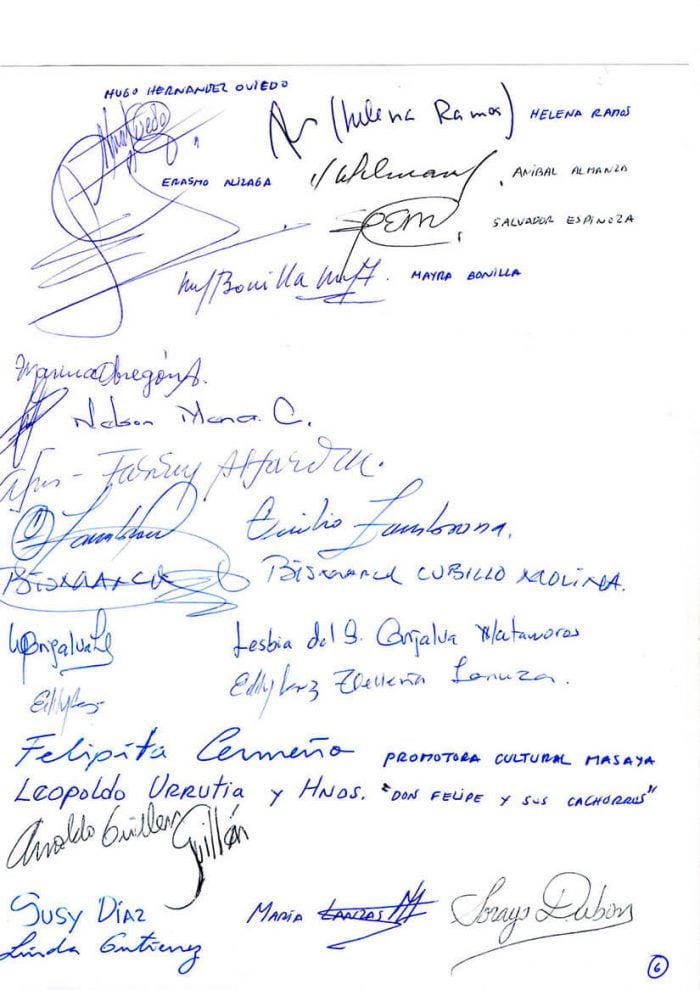 HUGO HERNANDEZ OVIEDO
(Helena Ramos) HELENA RAMOS
ERASMO ALIZAGA
ANIBAL ALMANZA
SALVADOR ESPINOZA
Bonilla MAYRA BONILLA
Marina Obregón A.
Nelson Mena C.
Alfaro
Emilio Zambrana.
BISMARCK BISMARCK CUBILLO MOLINA.
Gonzalva Lesbia del S. Gonzalva Matamoros
Lanuza.
Felipita Cermeño PROMOTORA CULTURAL MASAYA
LEOPOLDO URRUTIA Y HNOS. "DON FELIPE Y SUS CACHORROS"
Arnoldo Guillen Guillén
SUSY DÍAZ
MARÍA LANZAS
Soraya Dubon
Linda Gutierrez
6